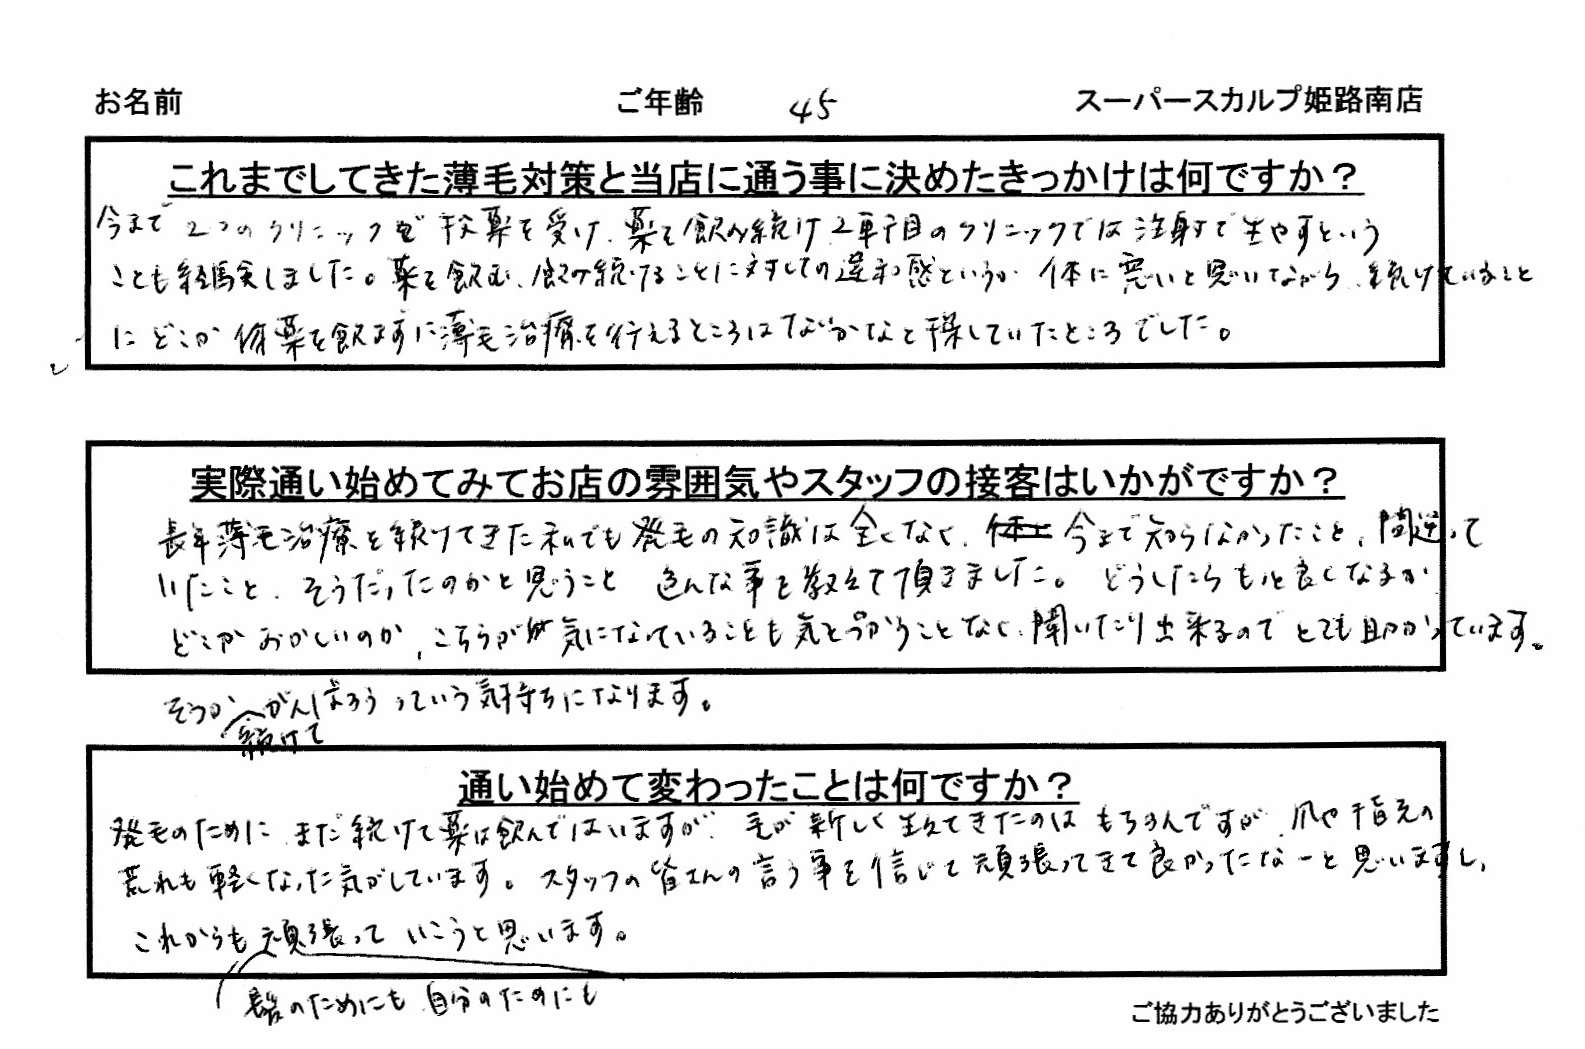 お名前 ご年齢 45 スーパースカルプ姫路南店
これまでしてきた薄毛対策と当店に通う事に決めたきっかけは何ですか？
今まで2つのクリニックで投薬を受け、薬を飲み続け、2軒目のクリニックでは注射で生やすという
ことも経験しました。薬を飲む、飲み続けることに対しての違和感というか 体に悪いと思いながら、続けていること
にどこか 薬を飲まずに薄毛治療を行えるところはないかなと探していたところでした。
実際通い始めてみてお店の雰囲気やスタッフの接客はいかがですか？
長年薄毛治療を続けてきた私でも発毛の知識は全くなく、今まで知らなかったこと、間違って
いたこと、そうだったのかと思うこと 色んな事を教えて頂きました。どうしたらもっと良くなるか
どこがおかしいのか、こちらが気になっていることも気を遣うことなく、聞いたり出来るのでとても助かっています。
そうか がんばろうっていう気持ちになります。
続けて
通い始めて変わったことは何ですか？
発毛のために まだ続けて薬は飲んではいますが、毛が新しく生えてきたのはもちろんですが、爪や指先の
荒れも軽くなった気がしています。スタッフの皆さんの言う事を信じて頑張ってきて良かったなーと思いますし、
これからも頑張って いこうと思います。
髪のためにも 自分のためにも
ご協力ありがとうございました